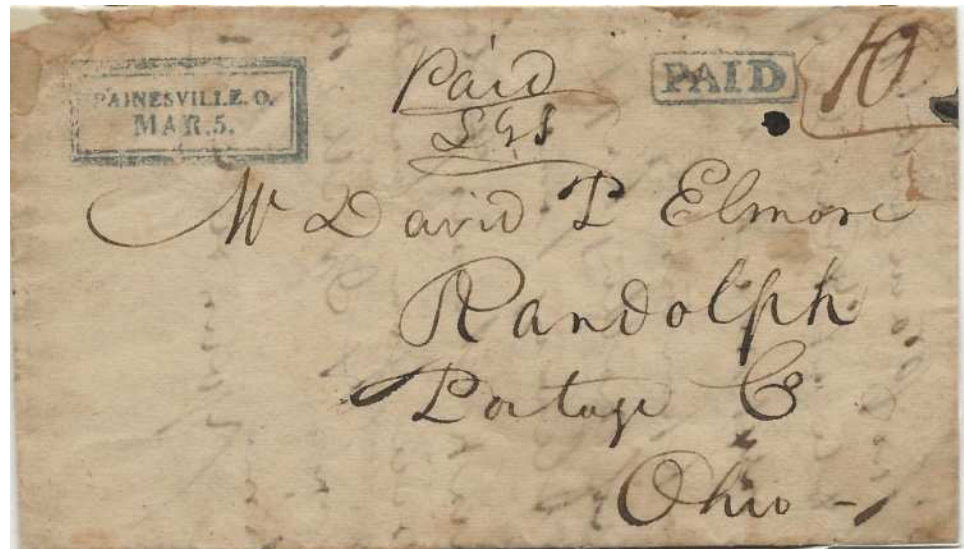 PAINESVILLE. O.
MAR. 5.
Paid
PAID
10
Mr David T Elmore
Randolph
Portage Co
Ohio -